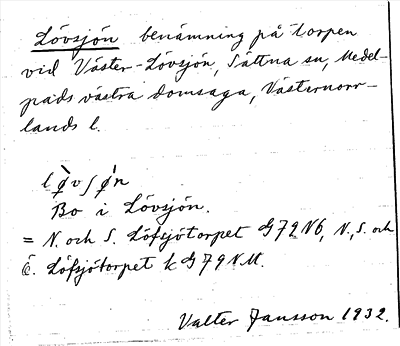 Lövsjön benämning på torpen
vid Väster-Lövsjön, Sättna sn, Medel-
pads västra domsaga, Västernorr-
lands l.
lø̀vʃø̍n
Bo i Lövsjön.
= N. och S. Löfsjötorpet G72V6, N., S. och
Ö. Löfsjötorpet k G79
Valter Jansson 1932.